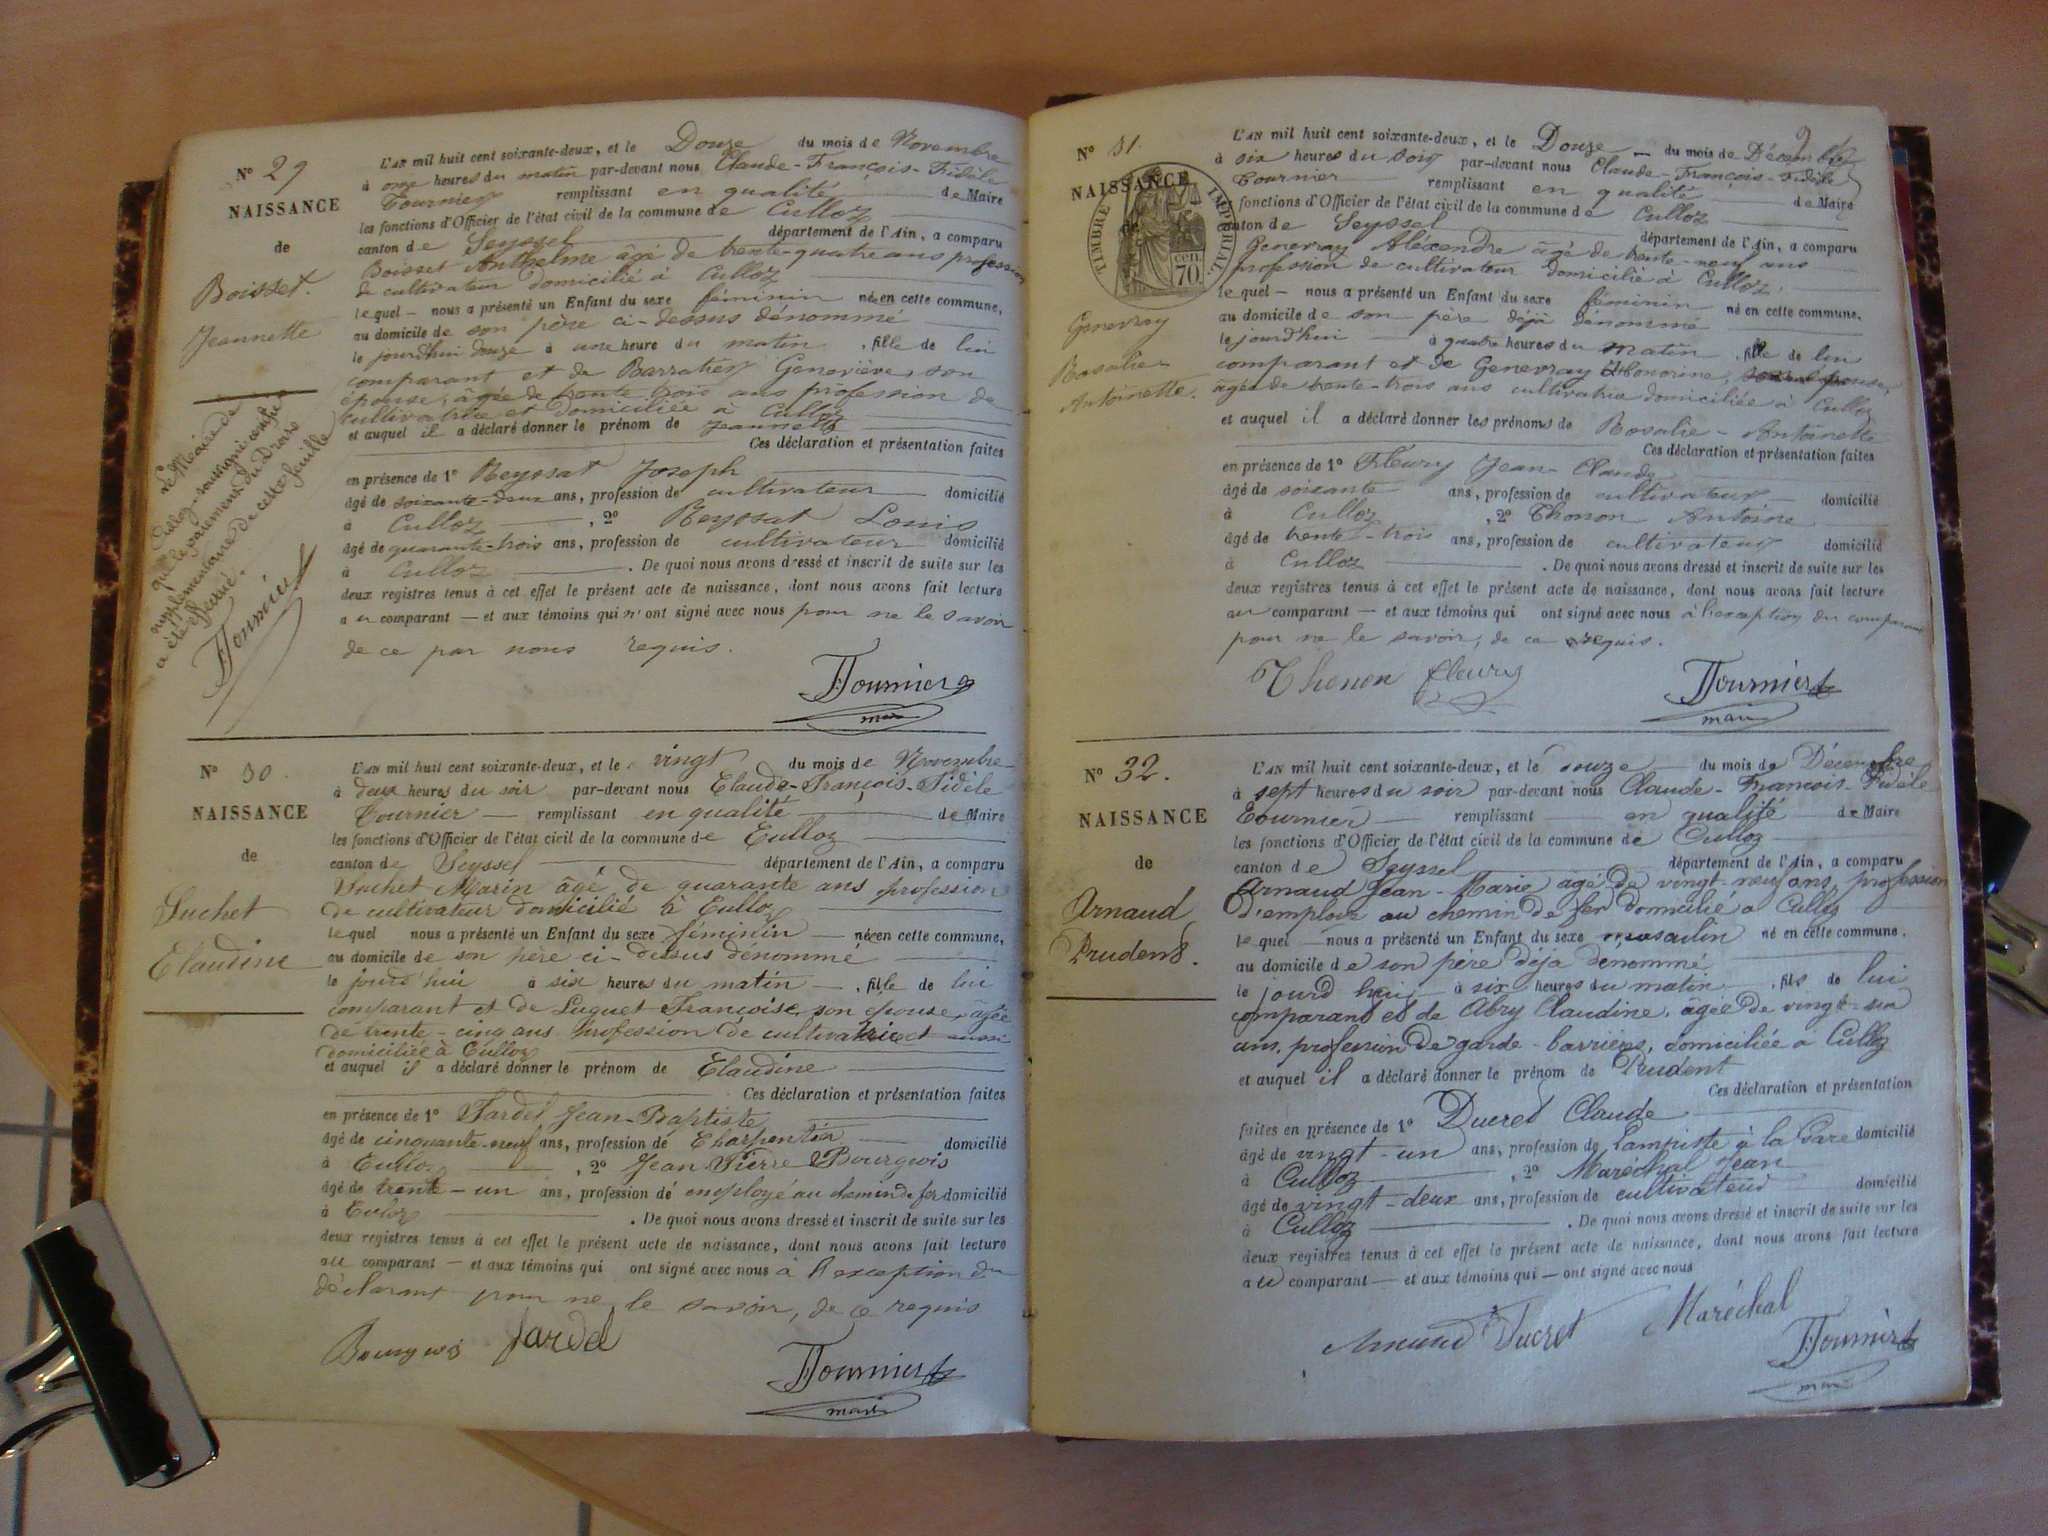 N° 29
NAISSANCE
de
Boisset.
Jeannette
L'AN mil huit cent soixante-deux, et le Douze du mois de Novembre
à onze heures du matin par-devant nous Claude-François-Fidèle
Fournier remplissant en qualité de Maire
les fonctions d'Officier de l'état civil de la commune de Culloz
canton de Seyssel département de l'Ain, a comparu
Boisset Anthelme âgé de trente-quatre ans profession
de cultivateur domicilié à Culloz
lequel — nous a présenté un Enfant du sexe féminin née en cette commune,
au domicile de son père ci-dessus dénommé
le jourd'hui douze à une heure du matin , fille de lui
comparant et de Barratier Geneviève, son
épouse, âgée de trente trois ans profession de
cultivatrice et domiciliée à Culloz
et auquel il a déclaré donner le prénom de Jeannette
Ces déclaration et présentation faites
en présence de 1° Reyssat Joseph
âgé de soixante-deux ans, profession de cultivateur domicilié
à Culloz , 2° Reyssat Louis
âgé de quarante-trois ans, profession de cultivateur domicilié
à Culloz . De quoi nous avons dressé et inscrit de suite sur les
deux registres tenus à cet effet le présent acte de naissance, dont nous avons fait lecture
au comparant — et aux témoins qui n'ont signé avec nous pour ne le savoir
de ce par nous requis.
Fournier
maire
Le Maire de
Culloz soussigné certifie
que le paiement du Droit
supplémentaire de cette feuille
a été effectué.
Fournier
N° 30.
NAISSANCE
de
Suchet
Claudine
L'AN mil huit cent soixante-deux, et le vingt du mois de Novembre
à deux heures du soir par-devant nous Claude-François-Fidèle
Fournier — remplissant en qualité de Maire
les fonctions d'Officier de l'état civil de la commune de Culloz
canton de Seyssel département de l'Ain, a comparu
Suchet Marin âgé de quarante ans profession
de cultivateur domicilié à Culloz
lequel nous a présenté un Enfant du sexe féminin — née en cette commune,
au domicile de son père ci-dessus dénommé
le jourd'hui à six heures du matin — , fille de lui
comparant et de Luguet Françoise, son épouse, âgée
de trente-cinq ans profession de cultivatrice et aussi
domiciliée à Culloz
et auquel il a déclaré donner le prénom de Claudine
Ces déclaration et présentation faites
en présence de 1° Jardel Jean-Baptiste
âgé de cinquante-neuf ans, profession de Charpentier domicilié
à Culloz , 2° Jean-Pierre Bourgeois
âgé de trente-un ans, profession de employé au chemin de fer domicilié
à Culoz . De quoi nous avons dressé et inscrit de suite sur les
deux registres tenus à cet effet le présent acte de naissance, dont nous avons fait lecture
au comparant — et aux témoins qui ont signé avec nous à l'exception du
déclarant pour ne le savoir, de ce requis
Bourgeois Jardel
Fournier
maire
N° 31.
NAISSANCE
de
TIMBRE IMPÉRIAL
70 cen.
Genevray
Rosalie
Antoinette.
L'AN mil huit cent soixante-deux, et le Douze — du mois de Décembre
à six heures du soir par-devant nous Claude-François-Fidèle
Fournier remplissant en qualité de Maire
fonctions d'Officier de l'état civil de la commune de Culloz
canton de Seyssel département de l'Ain, a comparu
Genevray Aléxendre âgé de trente-neuf ans
profession de cultivateur domicilié à Culloz.
lequel — nous a présenté un Enfant du sexe féminin né en cette commune,
au domicile de son père déjà dénommé
le jourd'hui — à quatre heures du matin , fille de lui
comparant et de Genevray Honorine, son épouse,
âgée de trente-trois ans cultivatrice domiciliée à Culloz
et auquel il a déclaré donner les prénoms de Rosalie-Antoinette
Ces déclaration et présentation faites
en présence de 1° Fleury Jean-Claude
âgé de soixante ans, profession de cultivateur domicilié
à Culloz , 2° Thonon Antoine
âgé de trente-trois ans, profession de cultivateur domicilié
à Culloz . De quoi nous avons dressé et inscrit de suite sur les
deux registres tenus à cet effet le présent acte de naissance, dont nous avons fait lecture
au comparant — et aux témoins qui ont signé avec nous à l'exception du comparant
pour ne le savoir, de ce requis.
Thonon fleury
Fournier
maire
N° 32.
NAISSANCE
de
Arnaud
Prudent.
L'AN mil huit cent soixante-deux, et le douze — du mois de Décembre
à sept heures du soir par-devant nous Claude-François-Fidèle
Fournier — remplissant en qualité — de Maire
les fonctions d'Officier de l'état civil de la commune de Culloz
canton de Seyssel département de l'Ain, a comparu
Arnaud Jean-Marie âgé de vingt-neuf ans, profession
d'employé au chemin de fer domicilié à Culloz
lequel — nous a présenté un Enfant du sexe masculin né en cette commune,
au domicile de son père déjà dénommé
le jourd'hui à six heures du matin , fils de lui
comparant et de Abry Claudine, âgée de vingt-six
ans, profession de garde-barrière, domiciliée à Culloz
et auquel il a déclaré donner le prénom de Prudent
Ces déclaration et présentation
faites en présence de 1° Ducret Claude
âgé de vingt-un ans, profession de lampiste à la Gare domicilié
à Culloz , 2° Maréchal Jean
âgé de vingt-deux ans, profession de cultivateur domicilié
à Culloz . De quoi nous avons dressé et inscrit de suite sur les
deux registres tenus à cet effet le présent acte de naissance, dont nous avons fait lecture
au comparant — et aux témoins qui — ont signé avec nous
Arnaud Ducret Maréchal
Fournier
maire